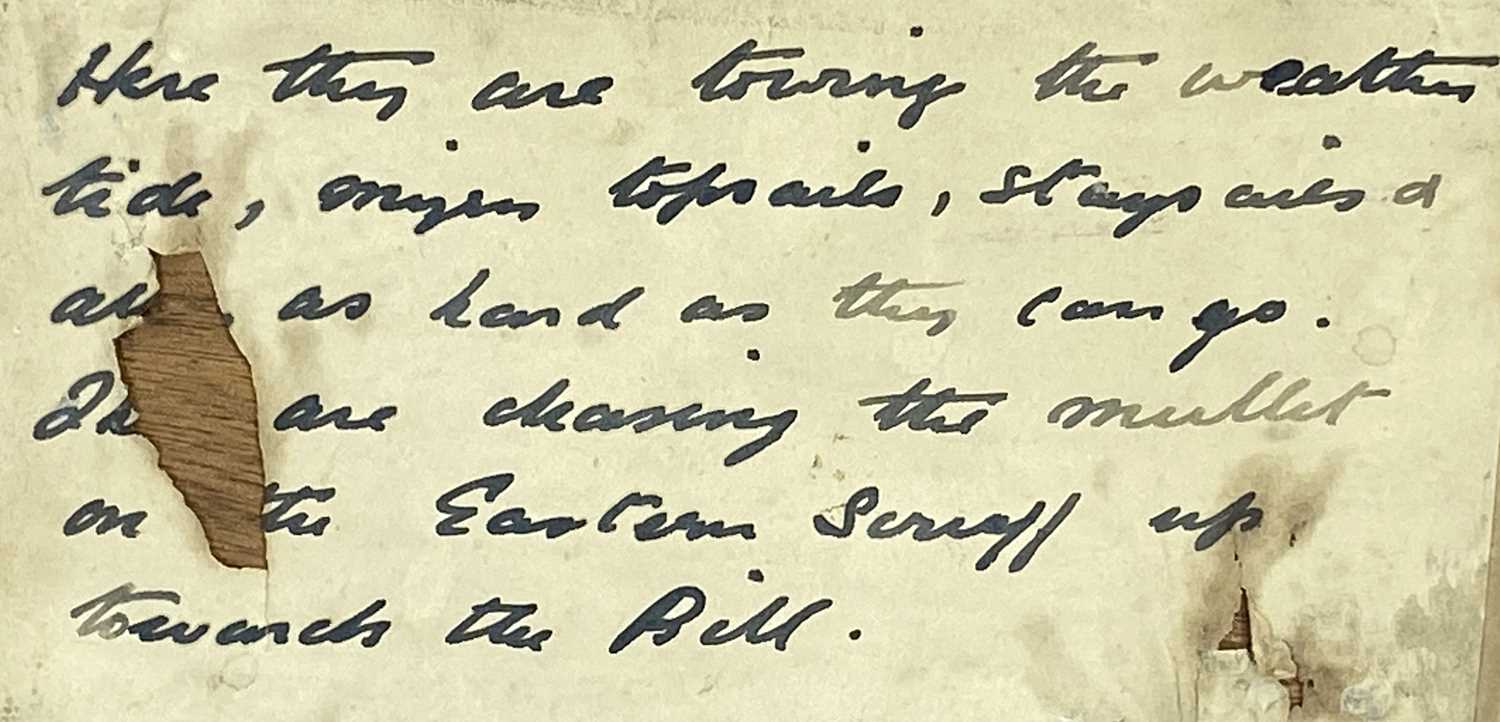 Here they are towing the weather
tide, mizen topsails, staysails &
as hard as they can go.
are chasing the mullet
on the Eastern Scruff up
towards the Bill.